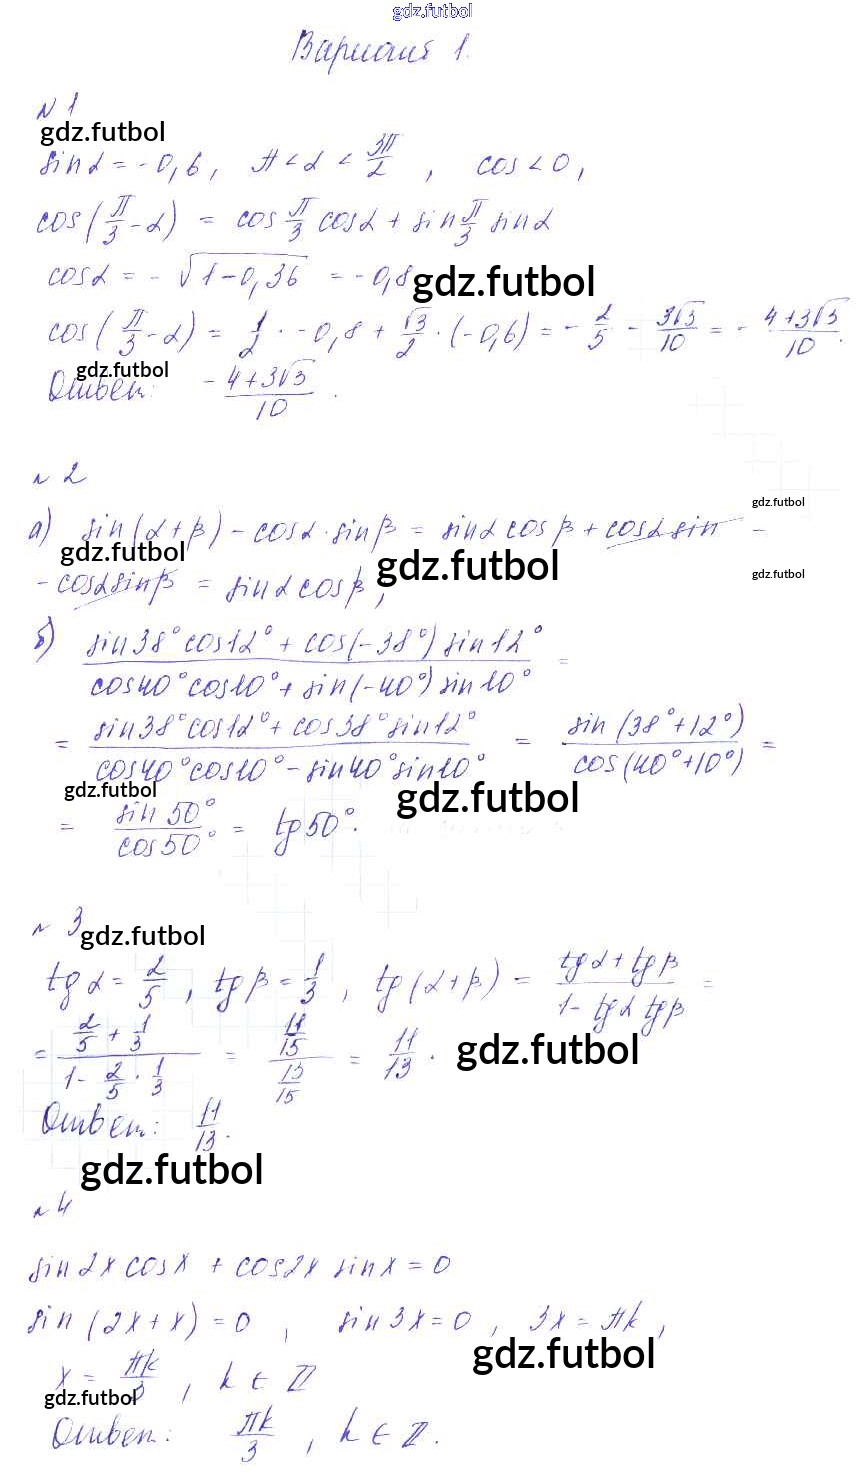 gdz.futbol
Вариант 1.
№ 1
gdz.futbol
sin α = -0,6, π < α < 3π/2, cos < 0,
cos(π/3 - α) = cos π/3 cos α + sin π/3 sin α
cos α = - √(1-0,36) = -0,8 gdz.futbol
cos(π/3 - α) = 1/2 · -0,8 + √3/2 · (-0,6) = - 2/5 - 3√3/10 = - (4+3√3)/10.
gdz.futbol
Ответ: - (4+3√3)/10.
№ 2
gdz.futbol
а) sin(α+β) - cos α · sin β = sin α cos β + cos α sin -
gdz.futbol gdz.futbol gdz.futbol
- cos α sin β = sin α cos β,
б) (sin 38° cos 12° + cos(-38°) sin 12°)/(cos 40° cos 10° + sin(-40°) sin 10°) =
= (sin 38° cos 12° + cos 38° sin 12°)/(cos 40° cos 10° - sin 40° sin 10°) = sin(38°+12°)/cos(40°+10°) =
gdz.futbol gdz.futbol
= sin 50°/cos 50° = tg 50°.
№ 3
gdz.futbol
tg α = 2/5, tg β = 1/3, tg(α+β) = (tg α + tg β)/(1 - tg α tg β) =
= (2/5 + 1/3)/(1 - 2/5 · 1/3) = (11/15)/(13/15) = 11/13. gdz.futbol
Ответ: 11/13.
gdz.futbol
№ 4
sin 2x cos x + cos 2x sin x = 0
sin(2x + x) = 0, sin 3x = 0, 3x = πk,
gdz.futbol
x = πk/3, k ∈ ℤ
gdz.futbol
Ответ: πk/3, k ∈ ℤ.